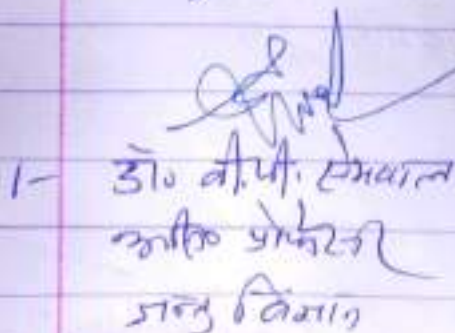 1- डॉ० वी.पी. सेमवाल
असि० प्रोफेसर
जन्तु विज्ञान